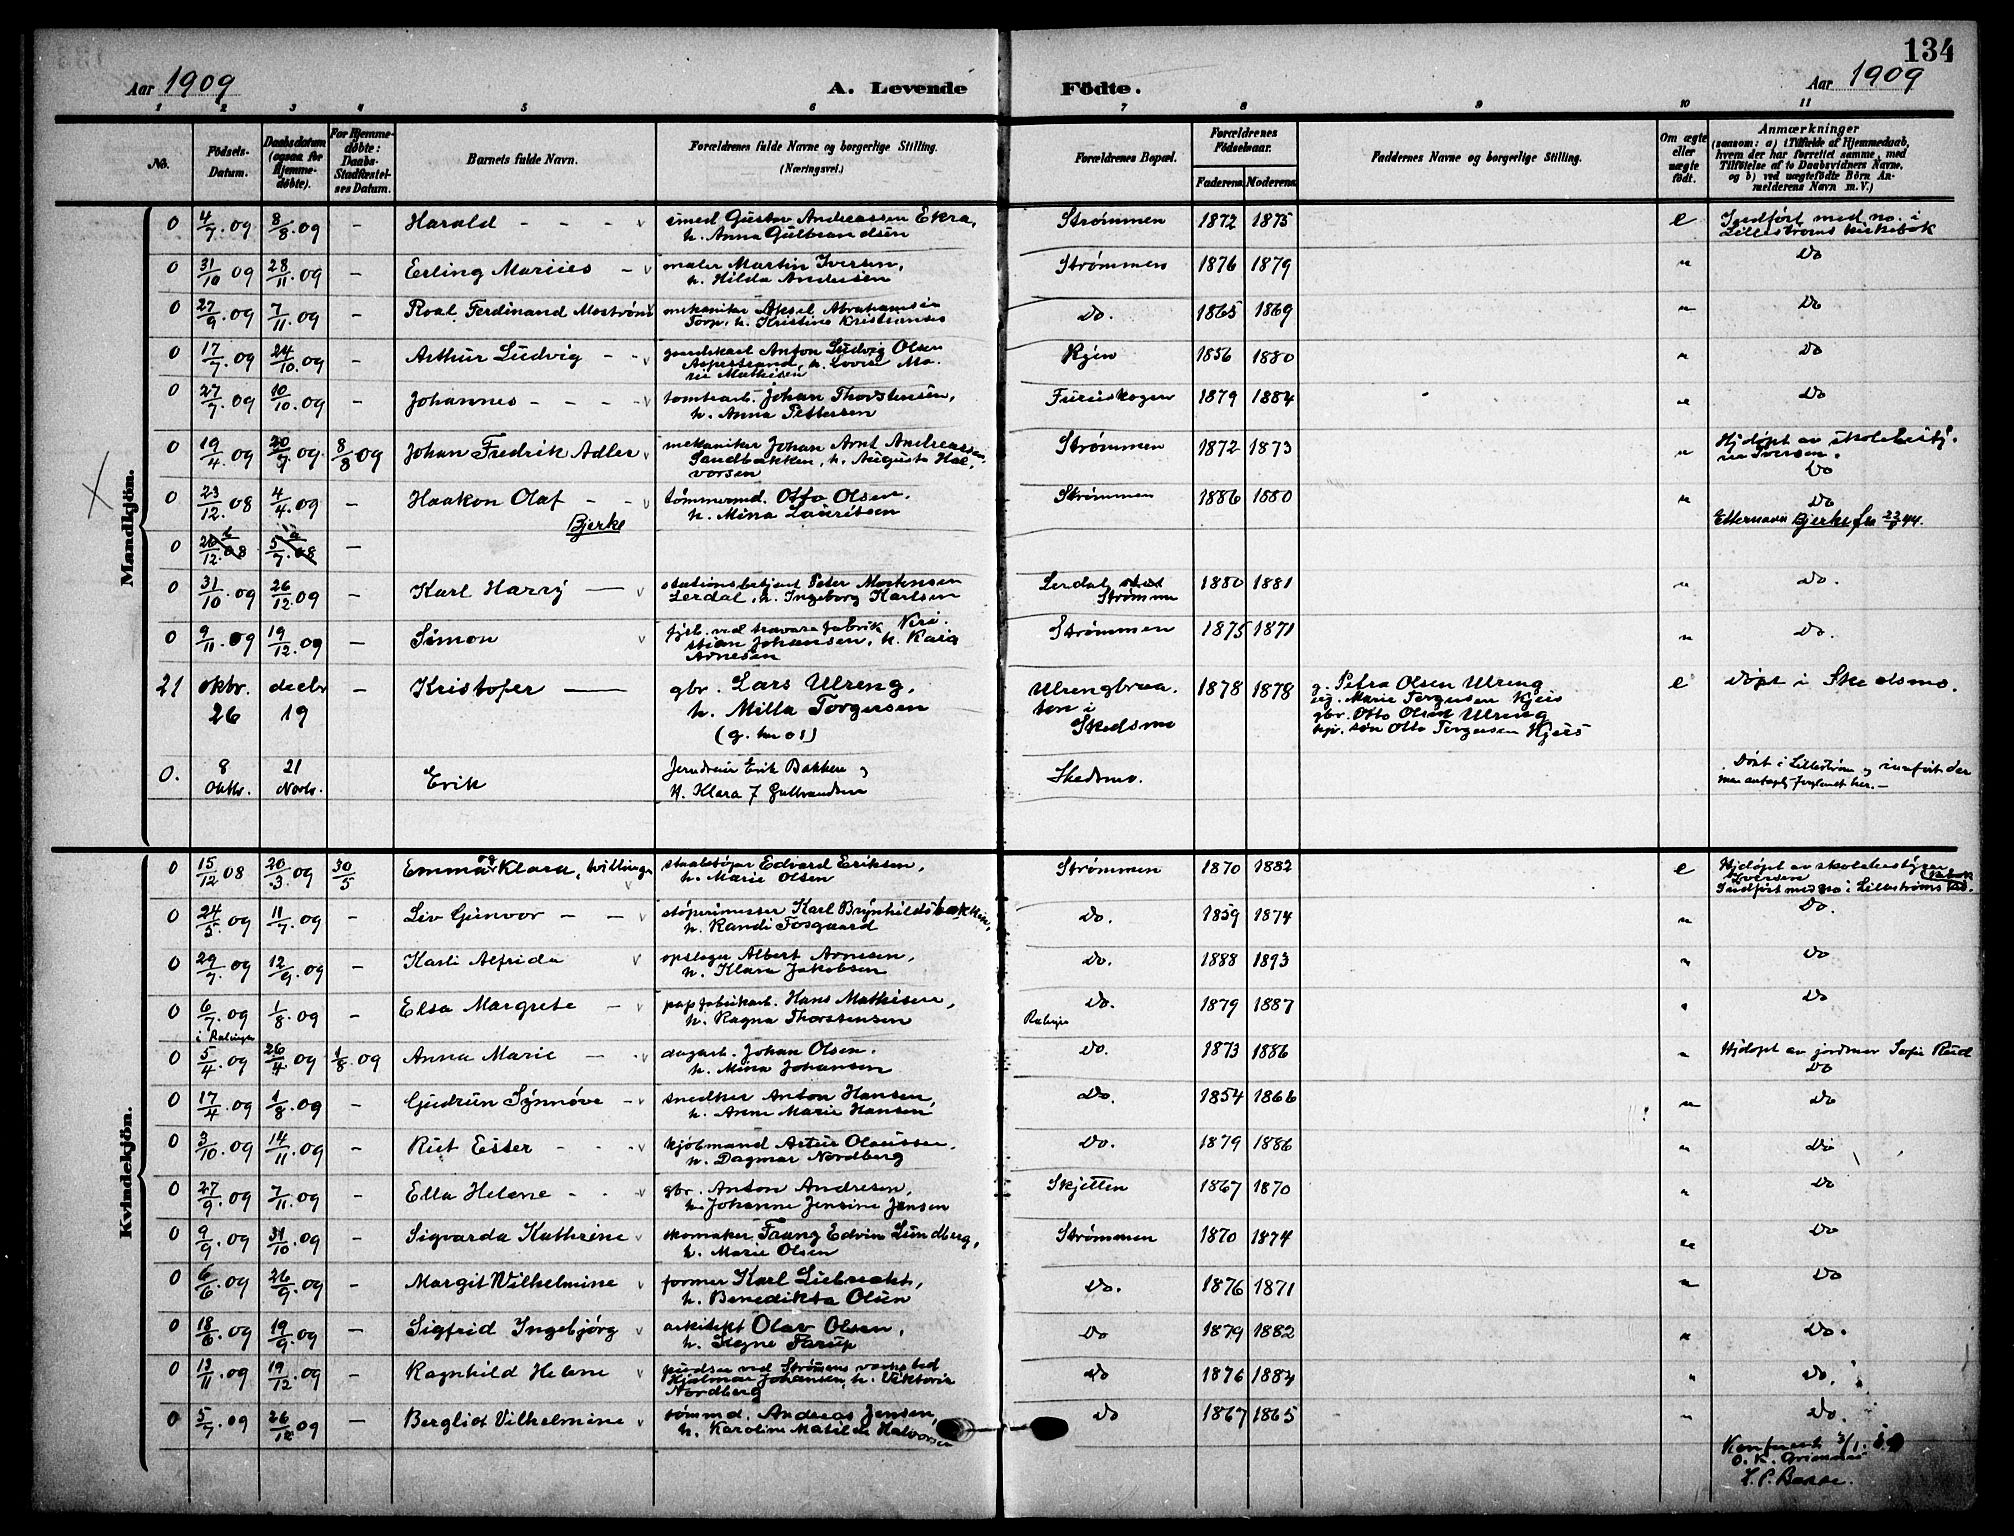 134
Aar 1909
A. Levende
Födte.
Aar 1909
1 2 3 4 5 6 7 8 9 10 11
No.
Födsels-Datum.
Daabsdatum (ogsaa for Hjemme-döbte).
For Hjemme-döbte: Daabs-Stadfæstel-ses Datum.
Barnets fulde Navn.
Forældrenes fulde Navne og borgerlige Stilling. (Næringsvei.)
Forældrenes Bopæl.
Forældrenes Födselsaar.
Faderens. Moderens.
Faddernes Navne og borgerlige Stilling.
Om ægte eller uægte födt.
Anmærkninger
(saasom: a) i Tilfælde af Hjemmedaab, hvem der har forrettet samme, med Tilföielse af to Daabsvidners Navne, og b) ved uægtefödte Börn An-melderens Navn m. V.)
Mandkjön.
0 4/7.09 8/8.09 - Harald - - - smed Gustav Andreassen Ekra, Strømmen 1872 1875 e Indført med no. i
h. Anna Gulbrandsen Lillestrøms kirkebok
0 31/10 09 28/11.09 - Erling Marius - maler Martin Iversen, Strømmen 1876 1879 " Do
h. Hilda Andersen
0 27/9.09 7/11.09 - Roal Ferdinand mekaniker Aksel Abrahamsen Do. 1865 1869 " Do
Torp, h. Kristine
0 17/7.09 24/10.09 - Arthur Ludvig - - Anton Ludvig Olsen 1856 1880 " Do
h. Lovise Ma-
rie Mathisen
0 27/7.09 10/10.09 - Johannes - - - - tomtearb. Johan Thorstensen, 1879 1884 " Do
h. Anna Pettersen
0 19/4.09 20/7 09. 8/8 09 Johan Fredrik Adler mekaniker Johan Arnt Andreassen Strømmen 1872 1873 " Hjdøpt av skolebestyr.
Sandbakken, h. Augusta Hal- Iversen.
vorsen Do
0 23/12.08 4/4.09 - Haakon Olaf - - tømmermd. Otto Olsen, Strømmen 1886 1880 " Do
Bjerke h. Mina Lauritsen Etternavn Bjerke
0 -
0 31/10.09 26/12.09 - Karl Harry - stationsbetjent Peter Mortensen Lerdal 1880 1881 " Do.
Lerdal, h. Ingeborg Karlsen Strømmen
0 9/11.09 19/12.09 - Simon fyrb. ved travarefabrik Kri- Strømmen 1875 1871 " Do.
stian Johansen, h. Karia
Arnesen
21 oktbr. decbr - Kristofer - gbr. Lars Ulreng, Ulrengbraa- 1878 1878 g. Petra Olsen Ulreng e døpt i Skedsmo.
26 19 h. Milla Torgersen ten i Marie Torgersen Kjeis
(g. 01) Skedsmo gbr. Otto Olsen Ulreng
søn Otto Torgersen Kjeis
0. 8 21 Erik Erik Bakken og Skedsmo. Døpt i Lillestrøm og innført der
Oktb. Novb. h. Klara J Gulbrandsen men her. -
Kvindekjön.
0 15/12 08 20/3.09 30/5 Emma og Klara, tvillinger staalstøper Edvard Eriksen, Strømmen 1870 1882 e Hjdøpt av skolebestyrer
h. Marie Olsen Iversen
Indført med no i Lillestrøms
0 24/5.09 11/7.09 - Liv Gunvor - - støperimester Karl Brynhildsbakken, Do. 1859 1874 " Do.
h. Randi Fosgaard
0 29/7.09 12/9.09 - Karli Alfrida opslager Albert Arnesen, Do. 1888 1893 " Do
h. Klara Jakobsen
0 6/7.09 1/8.09 - Elsa Margrete - papfabrikarb. Hans Mathisen, Do. 1879 1887 " Do
i Rælingen h. Ragna Thorstensen
0 5/4.09 26/4 09 1/8.09 Anna Marie - dagarb. Johan Olsen, Do. 1873 1886 " Hjdøpt av jordmor Sofie Rud
h. Mina Johansen Do
0 17/4.09 1/8.09 - Gudrun Synnøve - snedker Anton Hansen, Do. 1854 1866 " Do
h. Anne Marie Hansen
0 3/10.09 14/11.09 - Rut Ester - - kjøbmand Artur Olaussen, Do. 1879 1886 " Do
h. Dagmar Nordberg
0 27/9.09 7/11.09 - Ella Helene - - gbr. Anton Andresen, Skjetten 1867 1870 " Do
h. Johanne Jensine Jensen
0 9/9.09 31/10.09 - Sigvarda Kathrine skomaker Frang Edvin Lundberg, Strømmen 1870 1874 " Do
h. Marie Olsen
0 6/6.09 26/9.09 - Margit Vilhelmine former Karl Do. 1876 1871 " Do
h. Benedikta Olsen
0 18/6.09 19/9.09 - Sigfrid Ingebjørg arkitekt Olav Olsen, Do 1879 1882 " Do.
h. Signe Farup
0 13/11.09 19/12.09 - Ragnhild Helene pudser ved Strømmens verksted Do 1876 1884 " Do.
Hjalmar Johansen, h. Viktoria
Nordberg
0 5/7.09 26/12.09 - Bergliot Vilhelmine tømmd. Andreas Jensen, Do 1867 1865 " Do.
h. Karoline Matilde Halvorsen
Konferert 3/1.